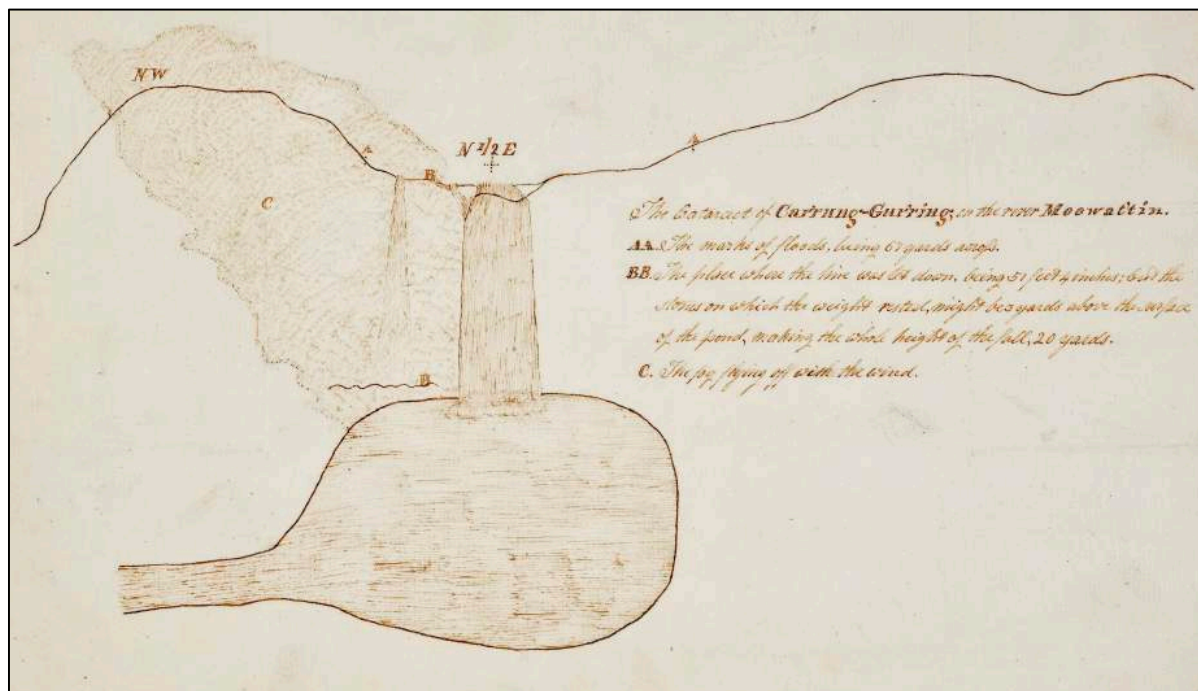 NW
N 1/2 E
A
A
B
C
The Cataract of Carrung-Gurring, in the river Moowattin.
AA. The marks of floods, being 67 yards acroſs.
BB. The place where the line was let down, being 51 feet 4 inches; but the
stones on which the weight rested, might be 3 yards above the surface
of the pond, making the whole height of the fall, 20 yards.
C. The fog flying off with the wind.
B